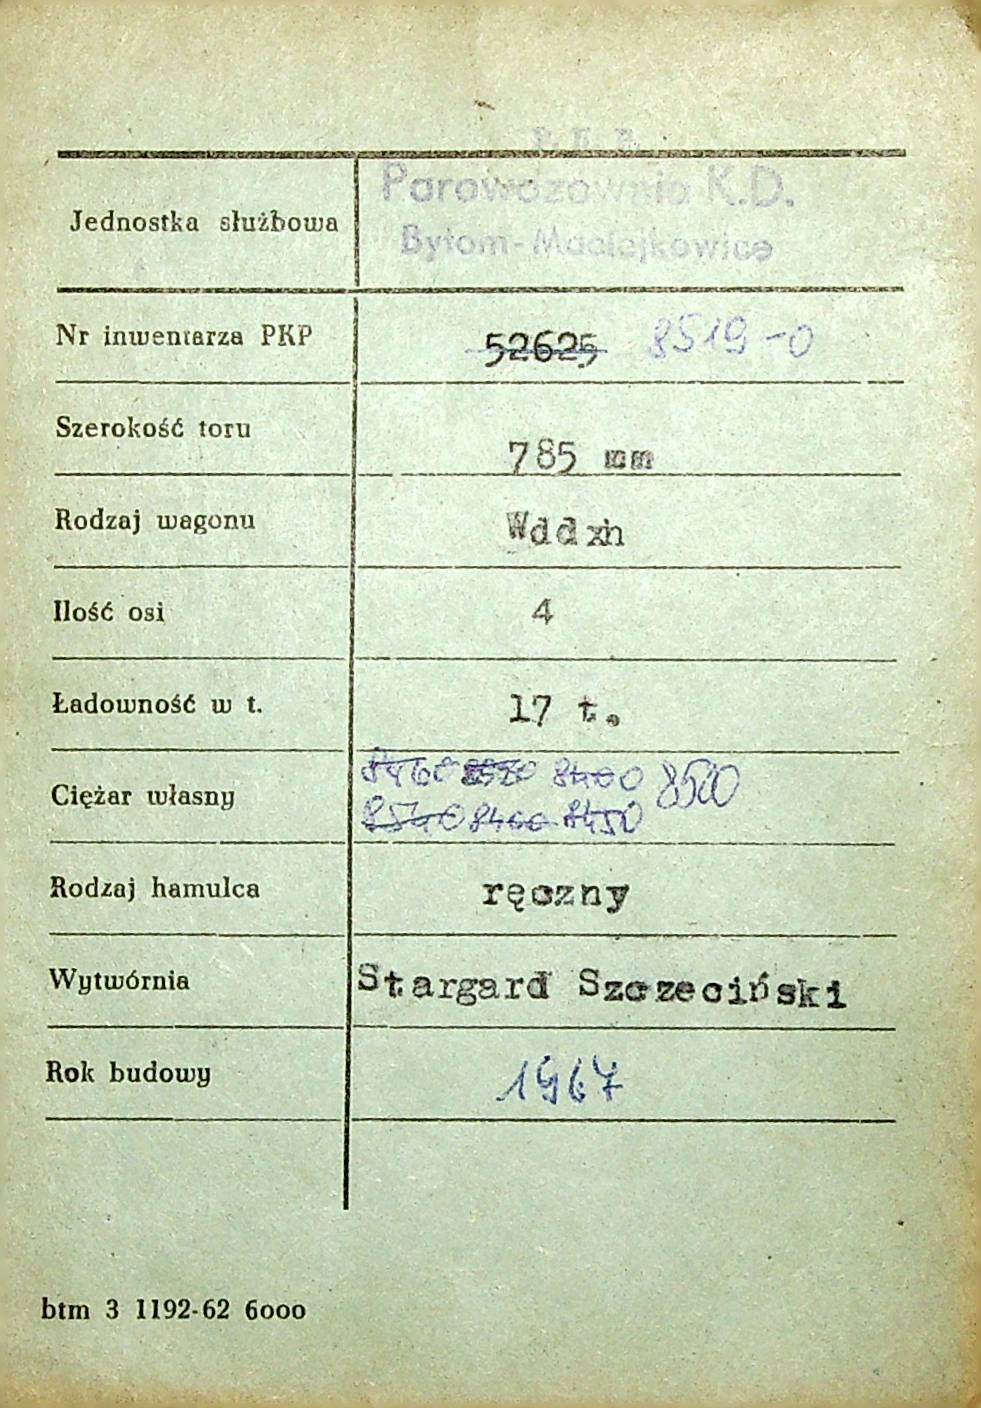 P. K. P.
Parowozownia K.D.
Jednostka służbowa
Bytom-Maciejkowice
Nr inwentarza PKP 52625 8519-0
Szerokość toru 785 mm
Rodzaj wagonu Wddxh
Ilość osi 4
Ładowność w t. 17 t.
8460 8400 8500
Ciężar własny
8540 8400 8450
Rodzaj hamulca ręczny
Wytwórnia Stargard Szczeciński
Rok budowy 1967
btm 3 1192-62 6000